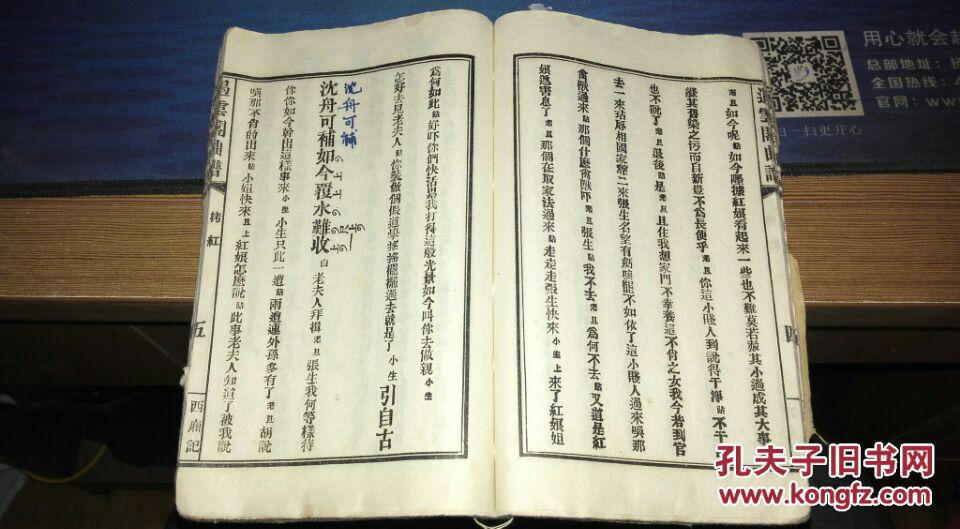 老旦如今呢貼如今嚜據紅娘看起來一些也不難莫若恕其小過成其大事
滌其舊染之污而自新豈不爲長便乎老旦你這小賤人到說得干淨貼不干
也不說了老旦還有什麼後貼是老旦且住我想家門不幸養這不肖之女我今若到官
去一來玷辱相國家聲二來張生名望有虧咳罷不如依了這小賤人過來喚那
禽獸過來貼那個什麼禽獸吓老旦張生貼我不去老旦爲何不去貼又道是紅
娘遞書哉了老旦那個在取家法過來貼走走走張生快來小生上來了紅娘姐
爲何如此貼好吓你們快活累我打得這般光景如今叫你去做親小生
怎好去見老夫人貼你裝做個假道學搖搖擺擺過去就是了小生引自古
沈舟可補如今覆水難收白老夫人拜揖老旦張生我何等樣待
沈舟可補
你你如今幹出這樣事來小生小生只此一遭貼兩遭連外孫多有了老旦胡說
喚那不肖的出來貼小姐快來旦上紅娘怎麼說貼此事老夫人知道了被我說
遏雲閣曲譜
拷紅
五
西廂記
遏雲閣曲譜
四
用心就会赶
总部地址：
全国热线：4
官网：ww
扫一扫更开心
孔夫子旧书网
www.kongfz.com